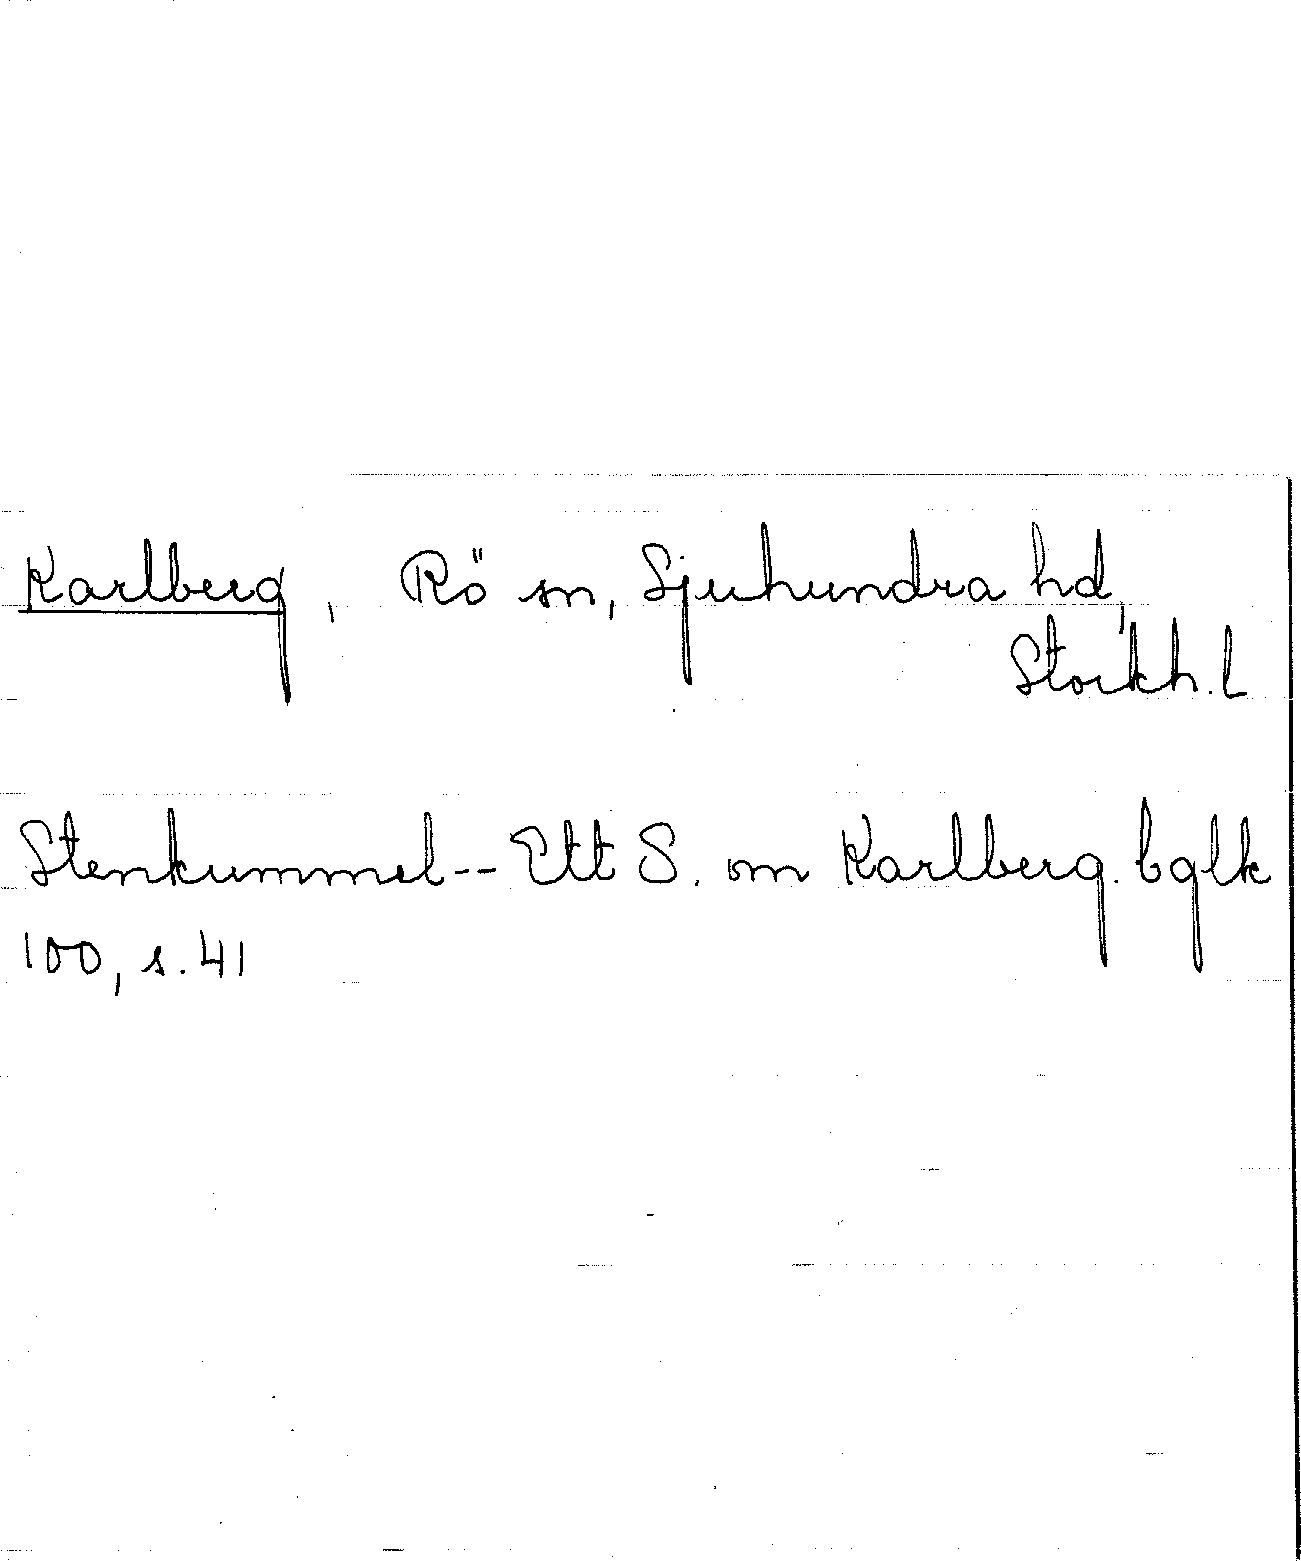 Karlberg, Rö sn, Sjuhundra hd,
Stockh. L
Stenkummel -- Ett S. om Karlberg. bglk
100, s. 41